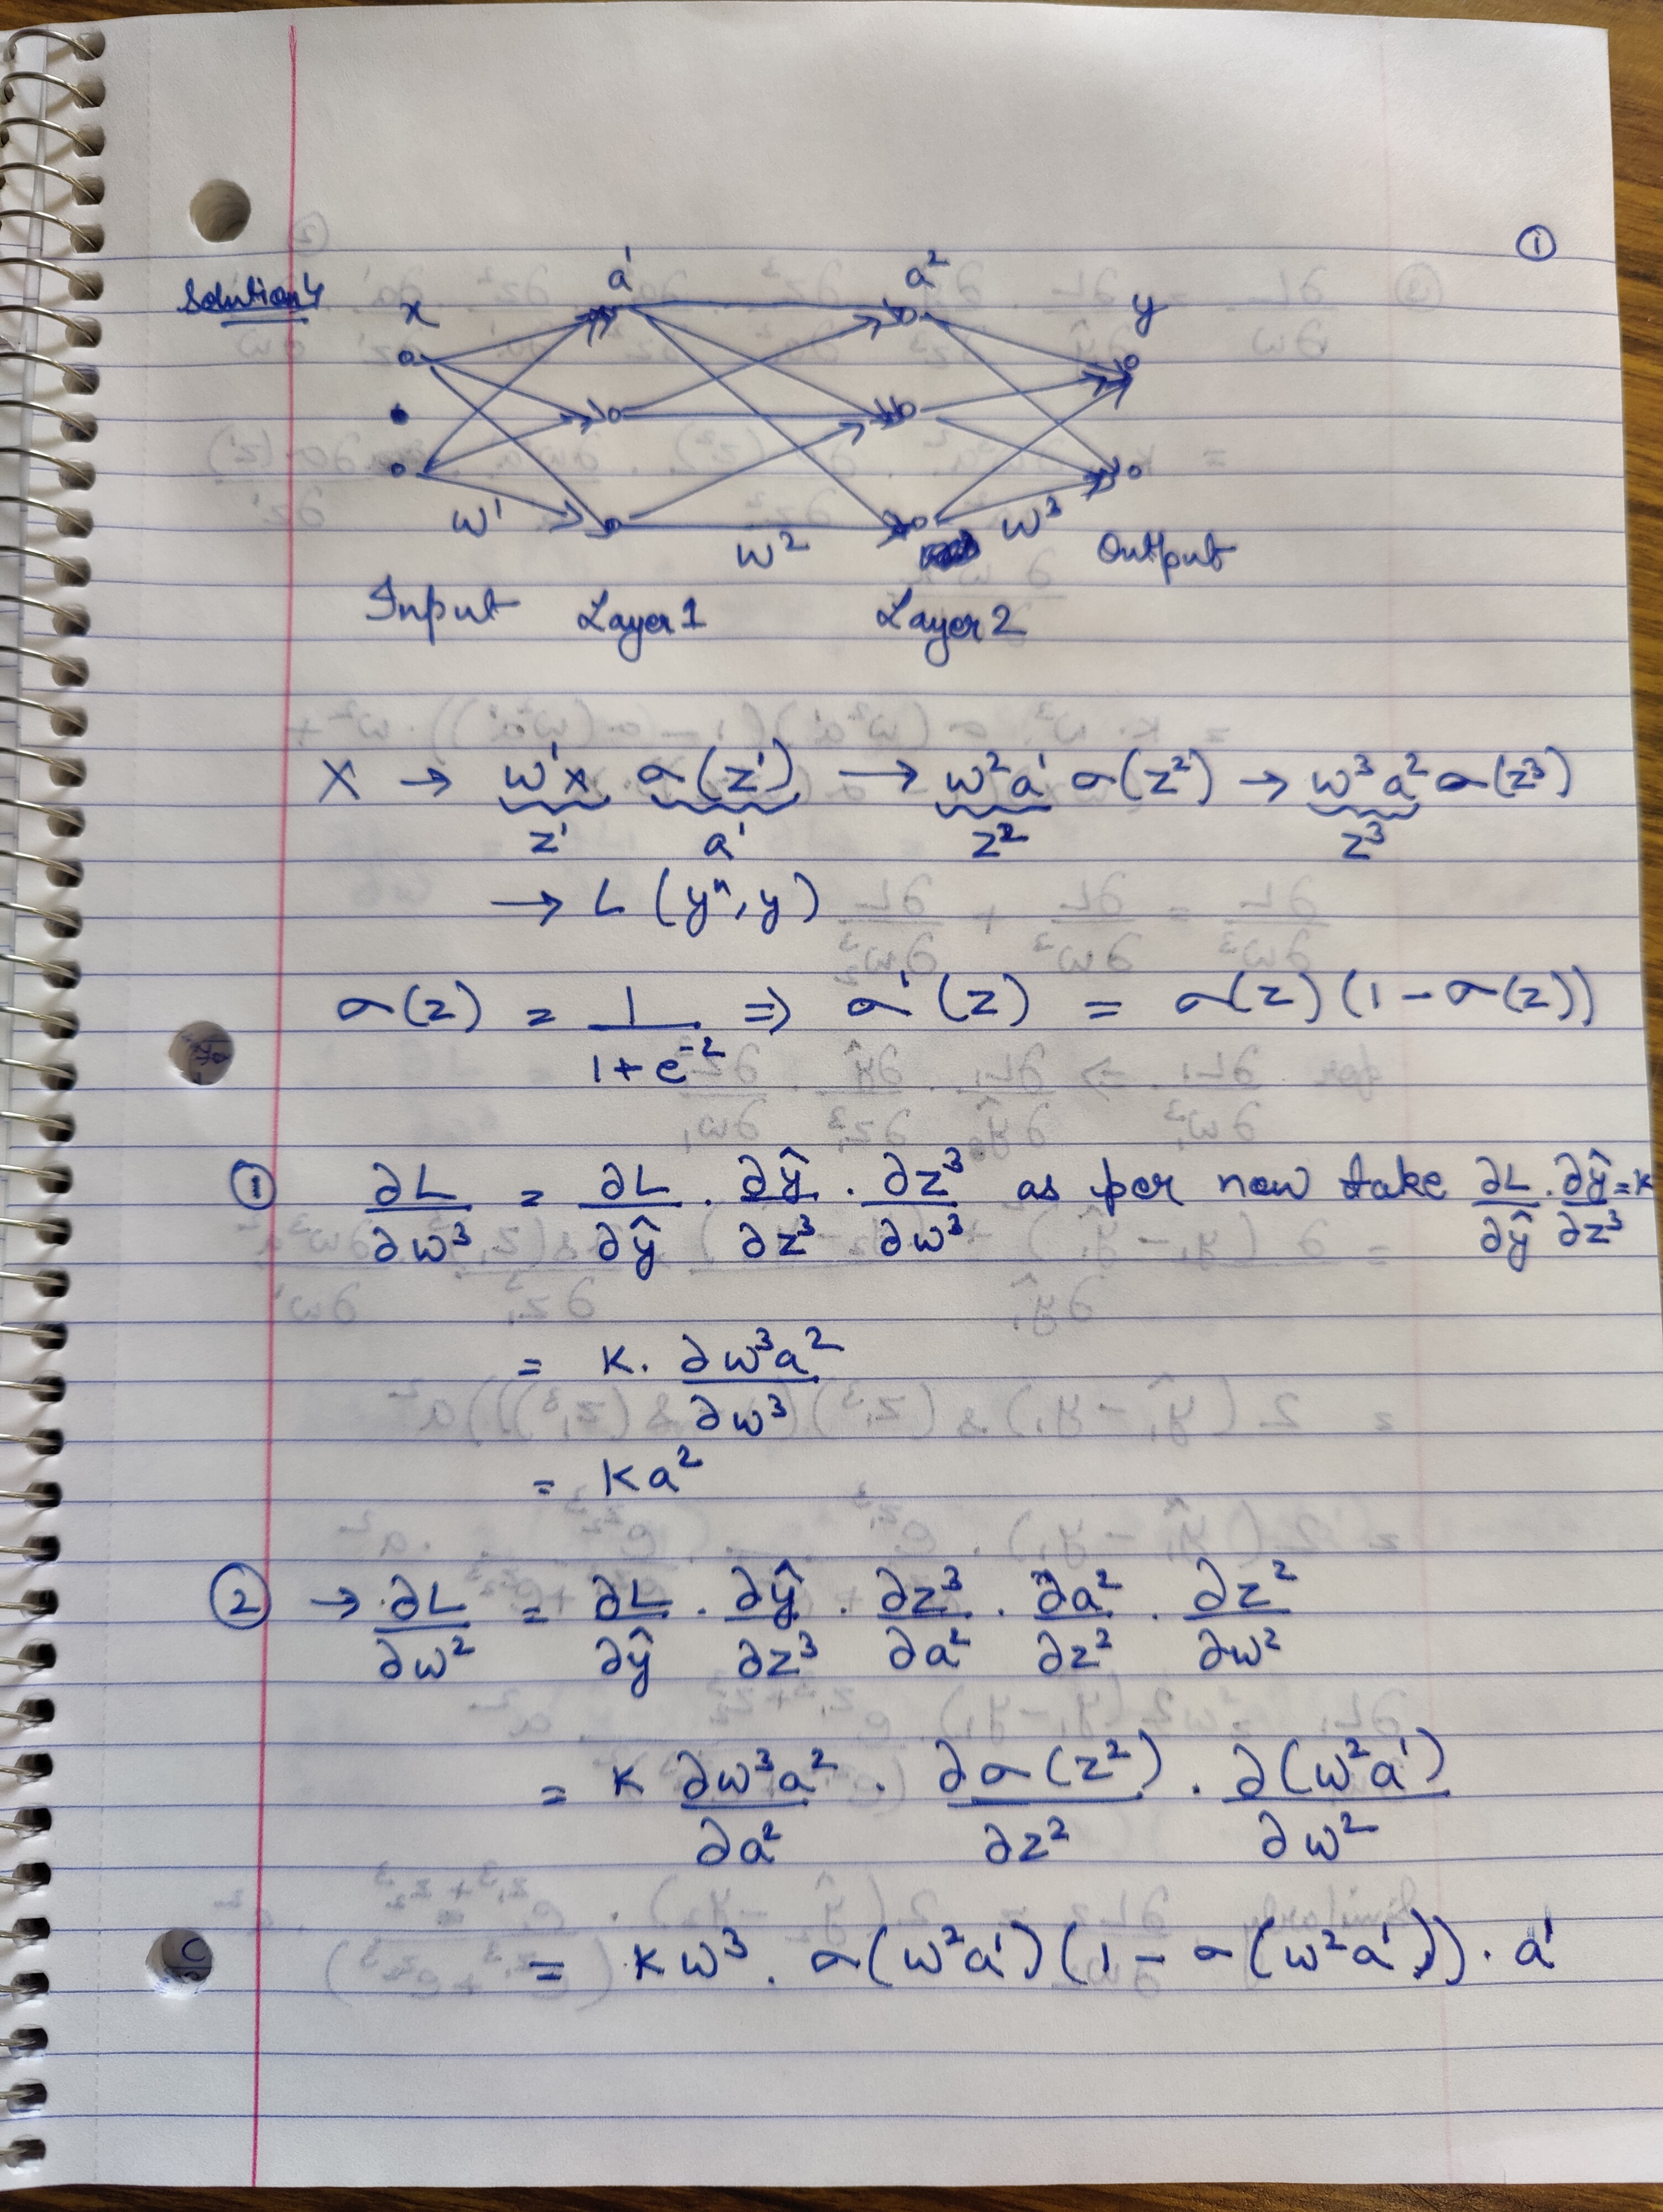 ①
Solution 4
x a¹ a² y
w¹ w² w³
Output
Input Layer 1 Layer 2
X → w¹x σ(z¹) → w²a¹ σ(z²) → w³a² σ(z³)
z¹ a¹ z² z³
→ L (y^, y)
σ(z) = 1/(1+e⁻ᶻ) ⇒ σ'(z) = σ(z)(1-σ(z))
① ∂L/∂w³ = ∂L/∂ŷ . ∂ŷ/∂z³ . ∂z³/∂w³ as per now take ∂L/∂ŷ . ∂ŷ/∂z³ = K
= K. ∂w³a²/∂w³
= Ka²
② → ∂L/∂w² = ∂L/∂ŷ . ∂ŷ/∂z³ . ∂z³/∂a² . ∂a²/∂z² . ∂z²/∂w²
= K ∂w³a²/∂a² . ∂σ(z²)/∂z² . ∂(w²a¹)/∂w²
= Kw³. σ(w²a¹)(1-σ(w²a¹)). a¹